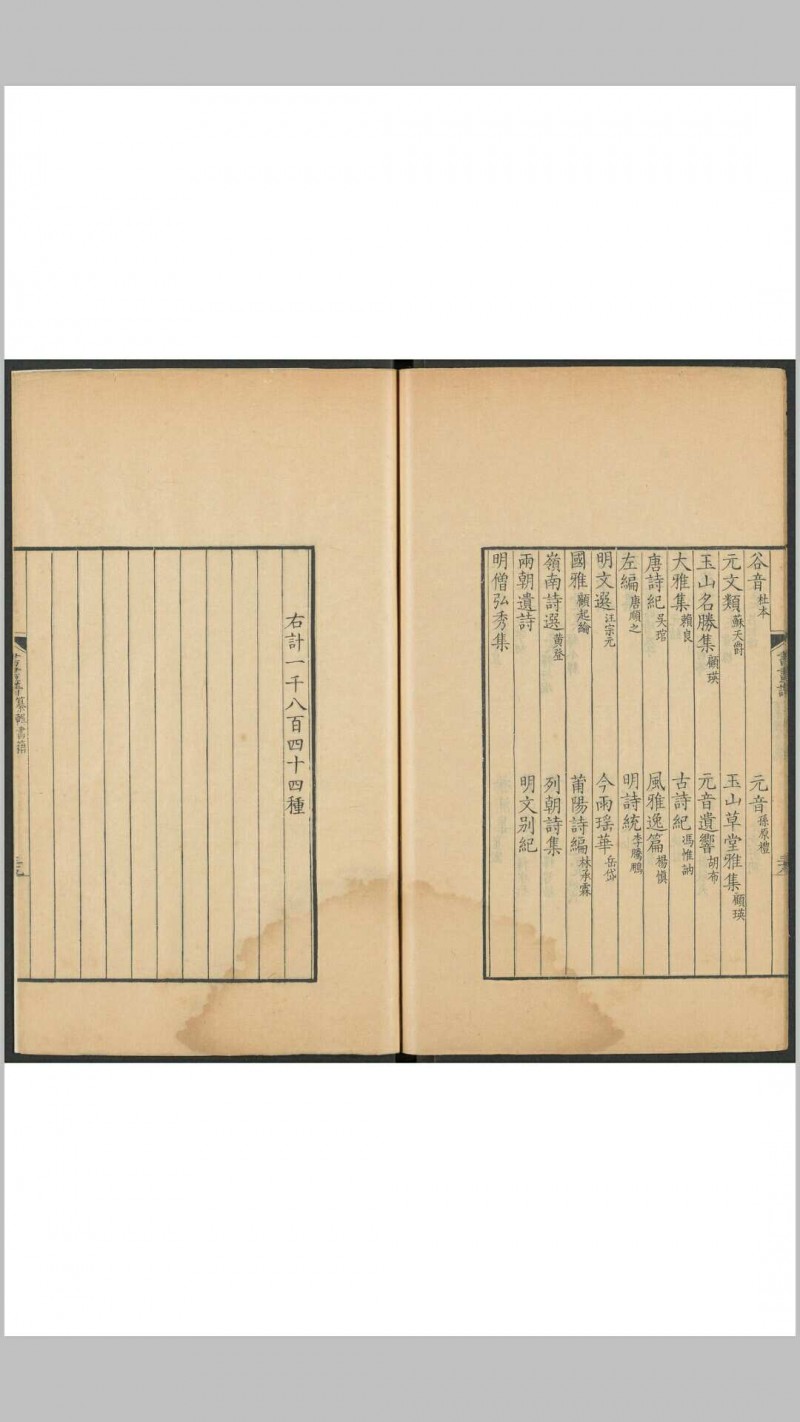 谷音 杜本 元音 孫原禮
元文類 蘇天爵 玉山草堂雅集 顧瑛
玉山名勝集 顧瑛 元音遺響 胡布
大雅集 賴良 古詩紀 馮惟訥
唐詩紀 吳琯 風雅逸篇 楊慎
左編 唐順之 明詩統 李騰鵬
明文選 汪宗元 今雨瑤華 岳岱
國雅 顧起綸 莆陽詩編 林承霖
嶺南詩選 黃登 列朝詩集
兩朝遺詩 明文別紀
明僧弘秀集
右計一千八百四十四種
纂輯書籍